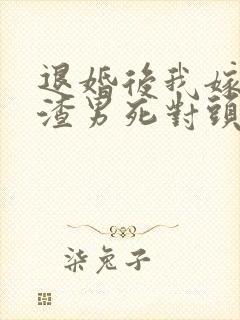 退婚後我嫁
渣男死對頭
柒兔子